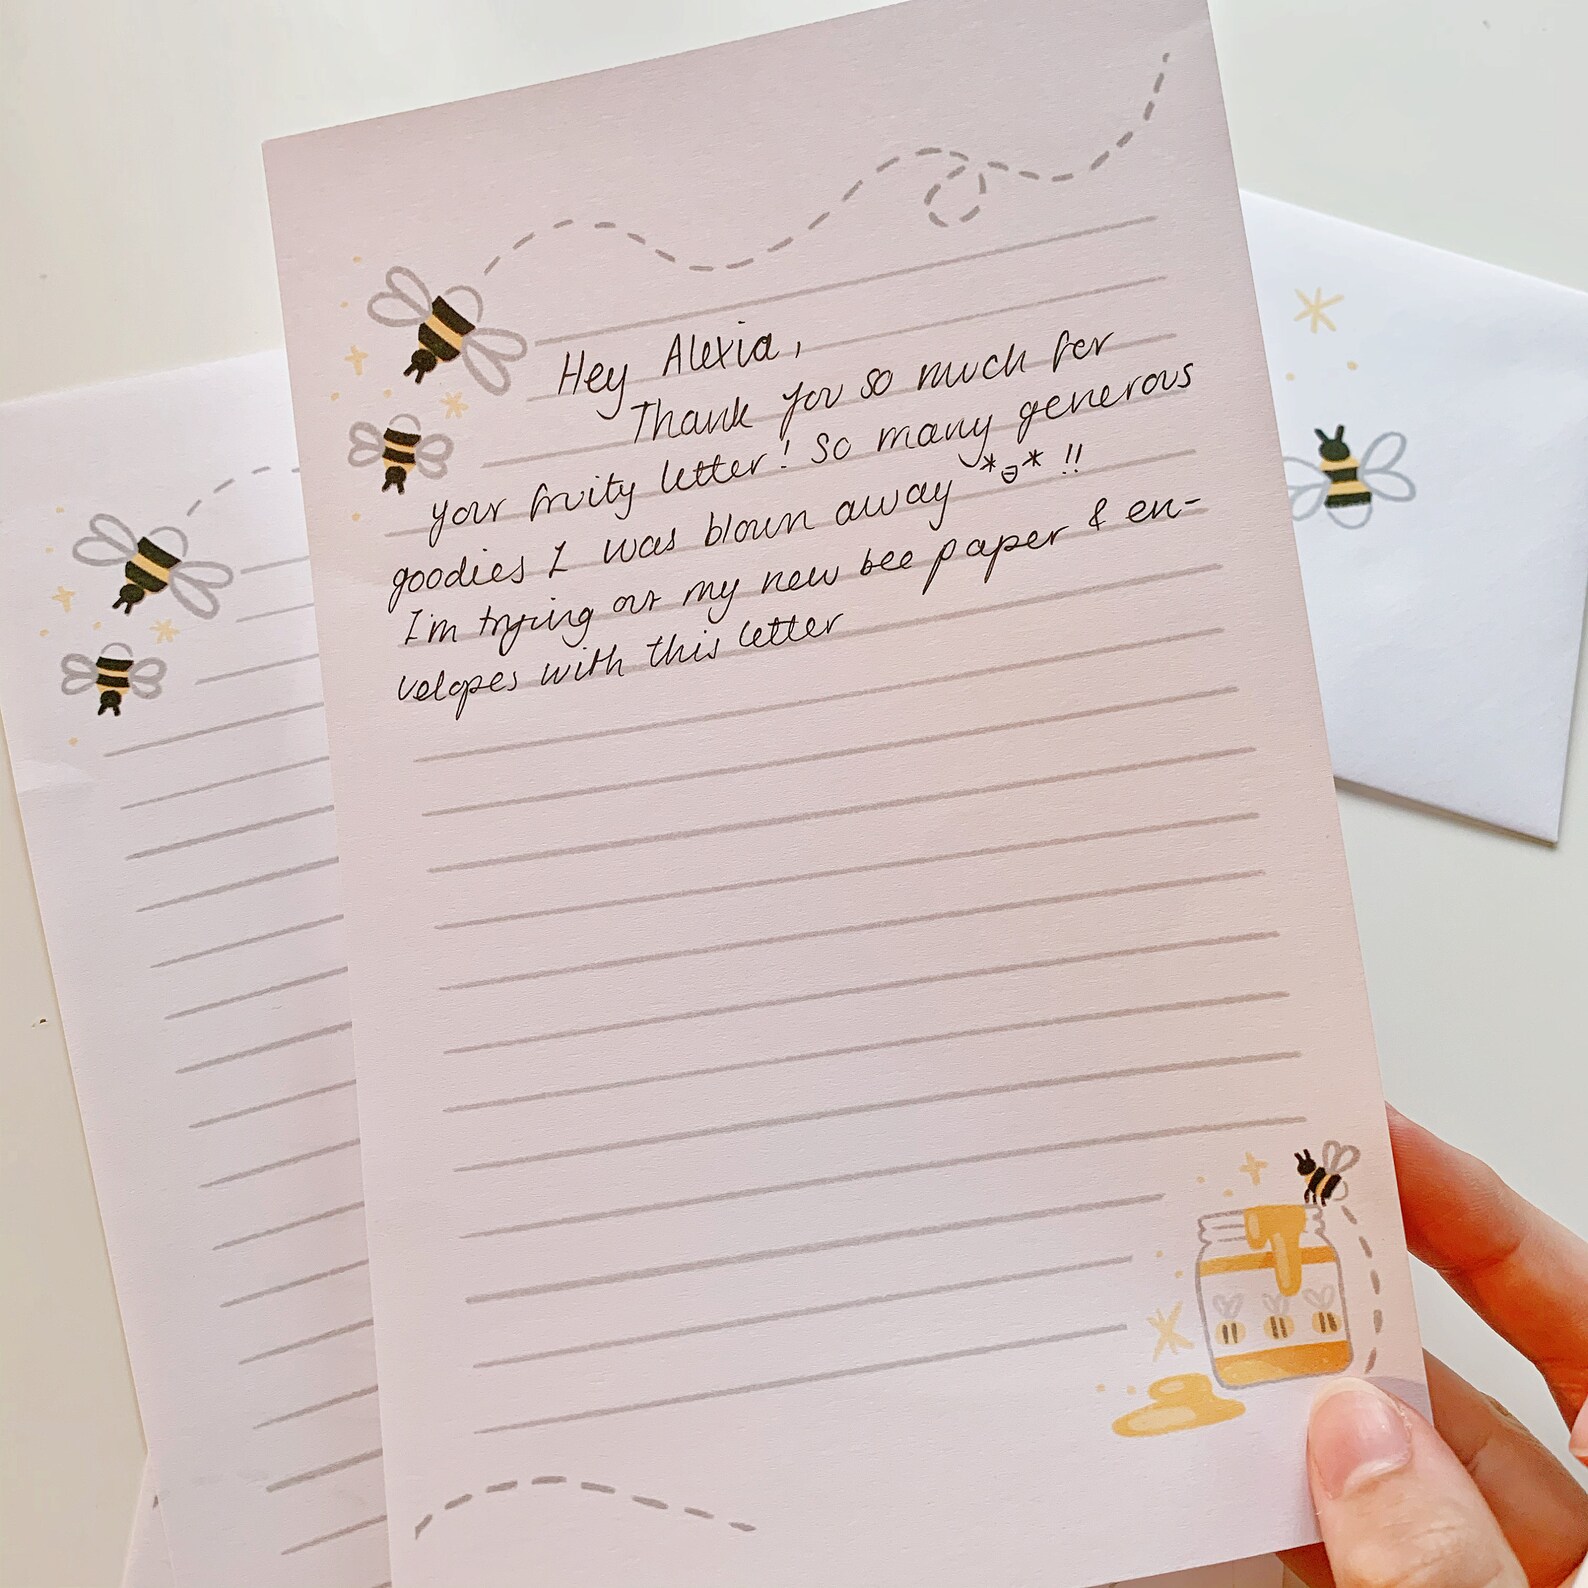 Hey Alexia,
Thank you so much for
your fruity letter! So many generous
goodies I was blown away *ɘ* !!
I'm trying out my new bee paper & en-
velopes with this letter